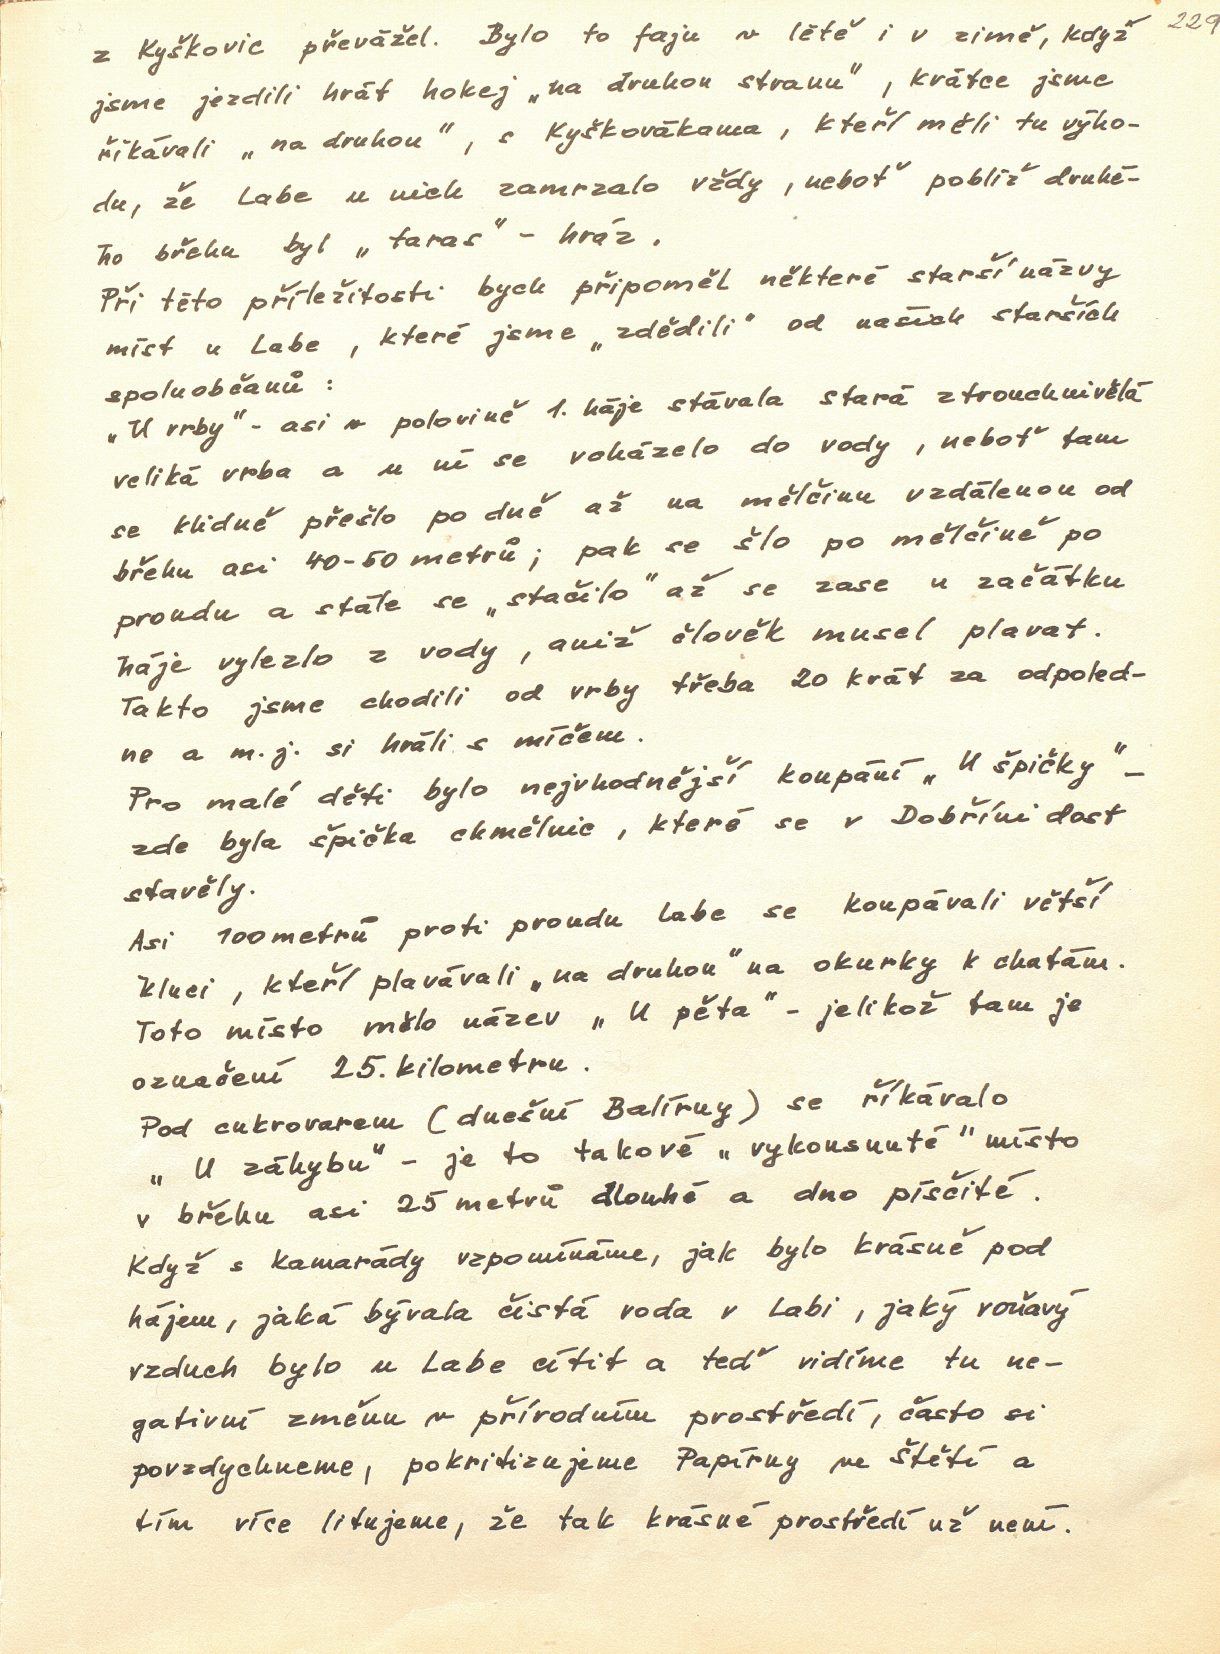 229
z Kyškovic převážel. Bylo to fajn v létě i v zimě, když
jsme jezdili hrát hokej „na druhou stranu", krátce jsme
říkávali „na druhou", s Kyškovákama, kteří měli tu výho-
du, že Labe u nich zamrzalo vždy, neboť poblíž druhé-
ho břehu byl „taras" - hráz.
Při této příležitosti bych připoměl některé starší názvy
míst u Labe, které jsme „zdědili" od našich starších
spoluobčanů :
„U vrby" - asi v polovině 1. háje stávala stará ztrouchnivělá
veliká vrba a u ní se voházelo do vody, neboť tam
se klidně přešlo po dně až na mělčinu vzdálenou od
břehu asi 40-50 metrů; pak se šlo po mělčině po
proudu a stále se „stačilo" až se zase u začátku
háje vylezlo z vody, aniž člověk musel plavat.
Takto jsme chodili od vrby třeba 20 krát za odpoled-
ne a m.j. si hráli s míčem.
Pro malé děti bylo nejvhodnější koupání „U špičky" -
zde byla špička chmělnic, které se v Dobříni dost
stavěly.
Asi 100 metrů proti proudu Labe se koupávali větší
kluci, kteří plavávali „na druhou" na okurky k chatám.
Toto místo mělo název „U pěta" - jelikož tam je
označení 25. kilometru.
Pod cukrovarem (dnešní Balírny) se říkávalo
„U záhybu" - je to takové „vykousnuté" místo
v břehu asi 25 metrů dlouhé a dno písčité.
Když s kamarády vzpomínáme, jak bylo krásně pod
hájem, jaká bývala čistá voda v Labi, jaký voňavý
vzduch bylo u Labe cítit a teď vidíme tu ne-
gativní změnu v přírodním prostředí, často si
povzdychneme, pokritizujeme Papírny ve Štětí a
tím více litujeme, že tak krásné prostředí už není.